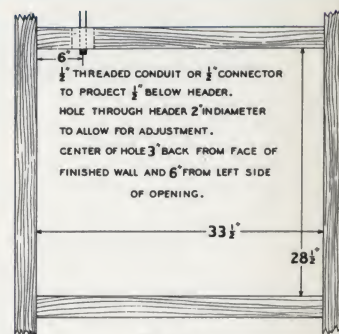 6"
½" THREADED CONDUIT OR ½" CONNECTOR
TO PROJECT ½" BELOW HEADER.
HOLE THROUGH HEADER 2" IN DIAMETER
TO ALLOW FOR ADJUSTMENT.
CENTER OF HOLE 3" BACK FROM FACE OF
FINISHED WALL AND 6" FROM LEFT SIDE
OF OPENING.
33½"
28½"